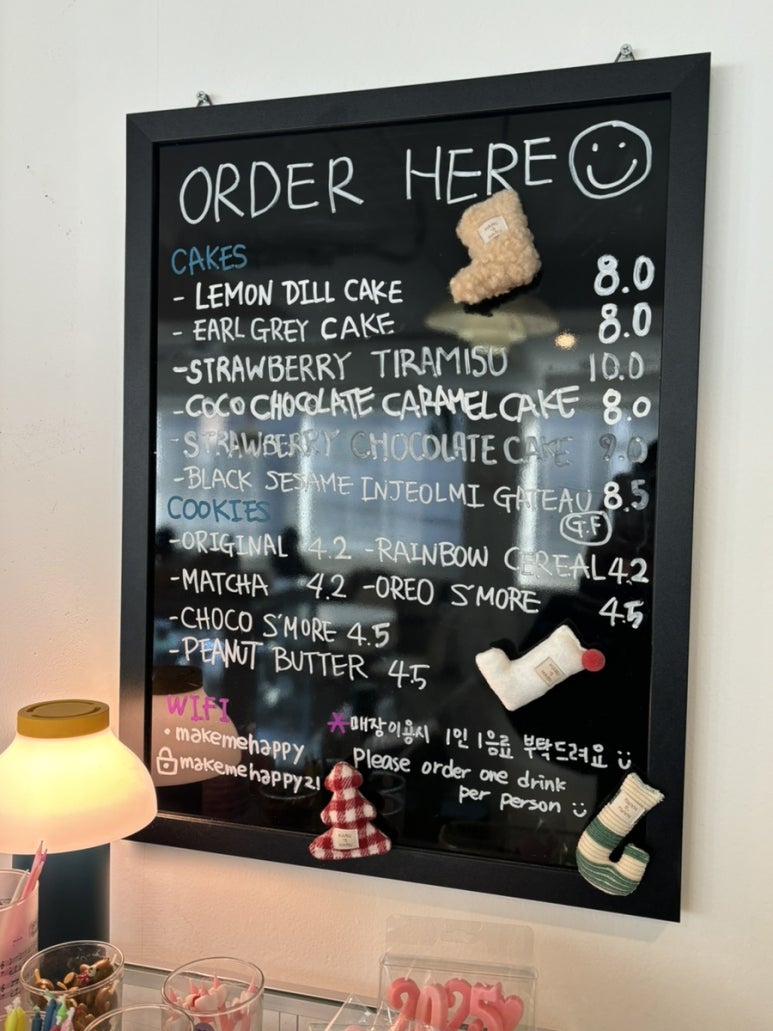 ORDER HERE
CAKES
- LEMON DILL CAKE 8.0
- EARL GREY CAKE 8.0
-STRAWBERRY TIRAMISU 10.0
-COCO CHOCOLATE CARAMEL CAKE 8.0
-STRAWBERRY CHOCOLATE CAKE 9.0
-BLACK SESAME INJEOLMI GATEAU 8.5
G.F
COOKIES
-ORIGINAL 4.2 -RAINBOW CEREAL 4.2
-MATCHA 4.2 -OREO S'MORE 4.5
-CHOCO S'MORE 4.5
-PEANUT BUTTER 4.5
WIFI
• makemehappy
makemehappy21
*매장이용시 1인 1음료 부탁드려요
Please order one drink
per person
2025